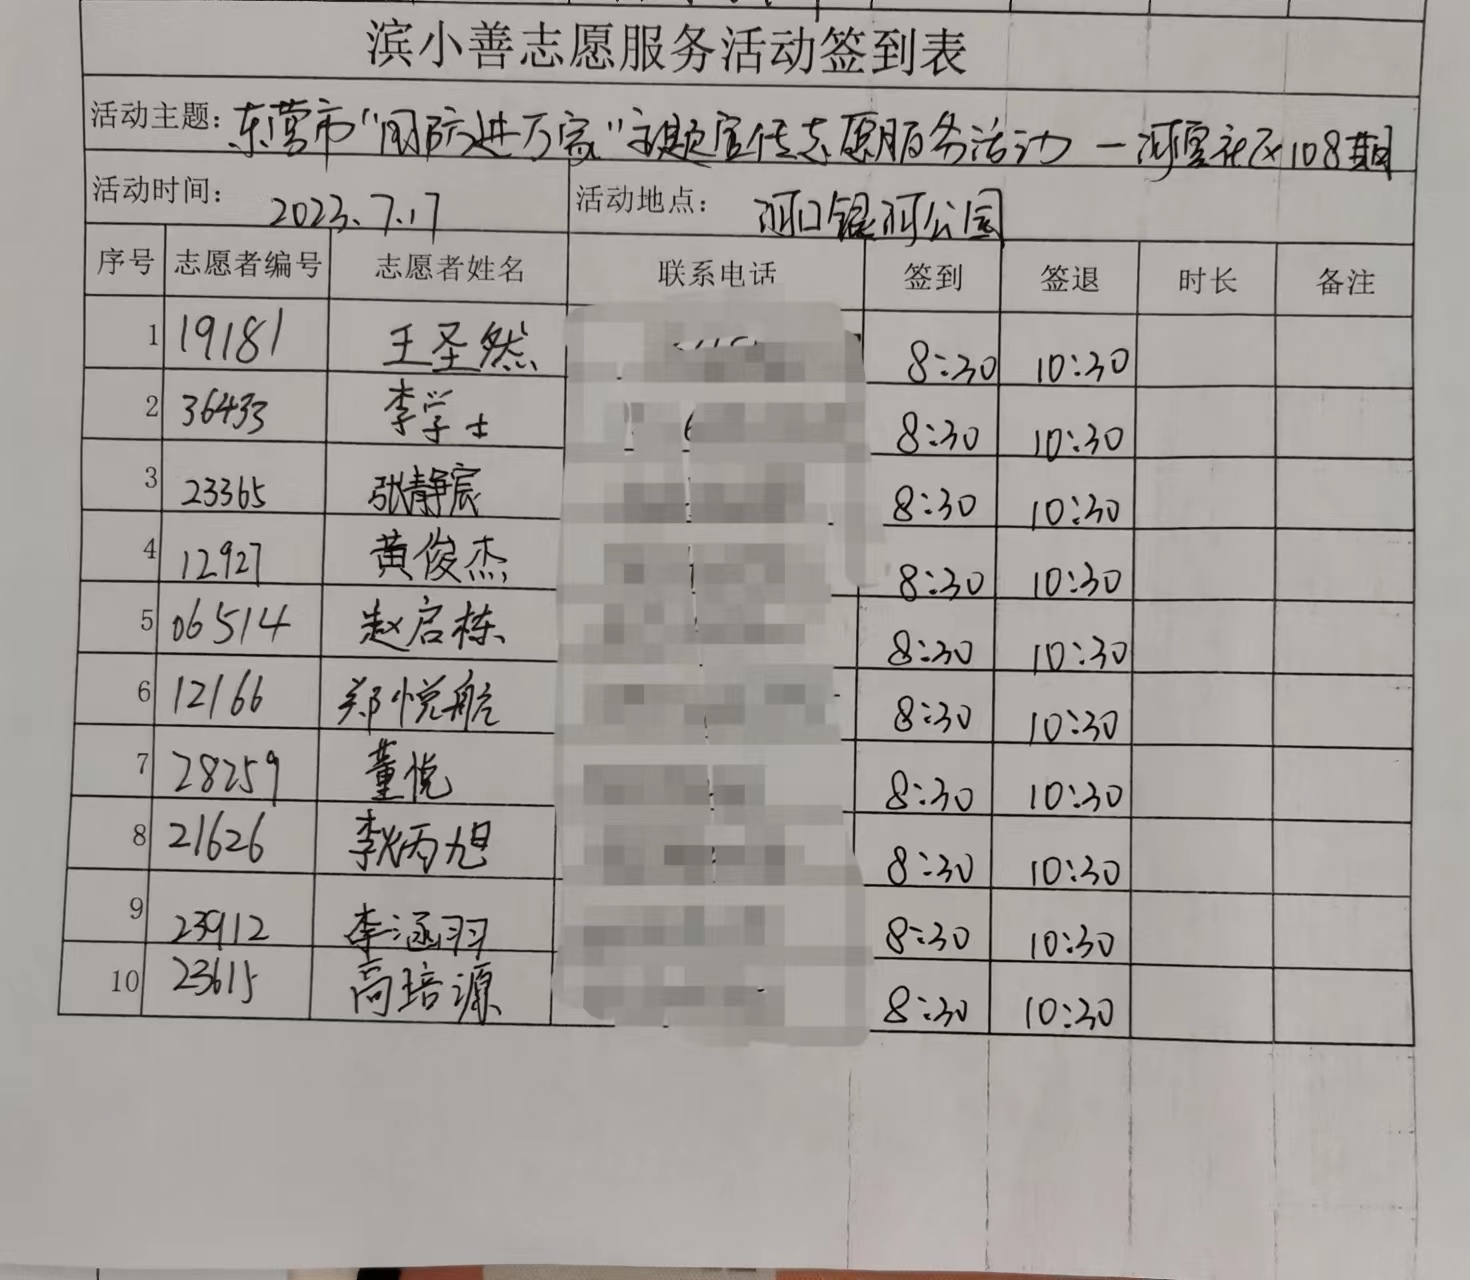 滨小善志愿服务活动签到表
活动主题：东营市“国防进万家”主题宣传志愿服务活动－河社区108期
活动时间：2023.7.17 活动地点：河口银河公园
序号 志愿者编号 志愿者姓名 联系电话 签到 签退 时长 备注
1 19181 王圣然 8:30 10:30
2 36433 李学士 8:30 10:30
3 23365 张静宸 8:30 10:30
4 12927 黄俊杰 8:30 10:30
5 06514 赵启栋 8:30 10:30
6 12166 郑悦航 8:30 10:30
7 28259 董悦 8:30 10:30
8 21626 李炳旭 8:30 10:30
9 23912 李涵羽 8:30 10:30
10 23615 高培源 8:30 10:30